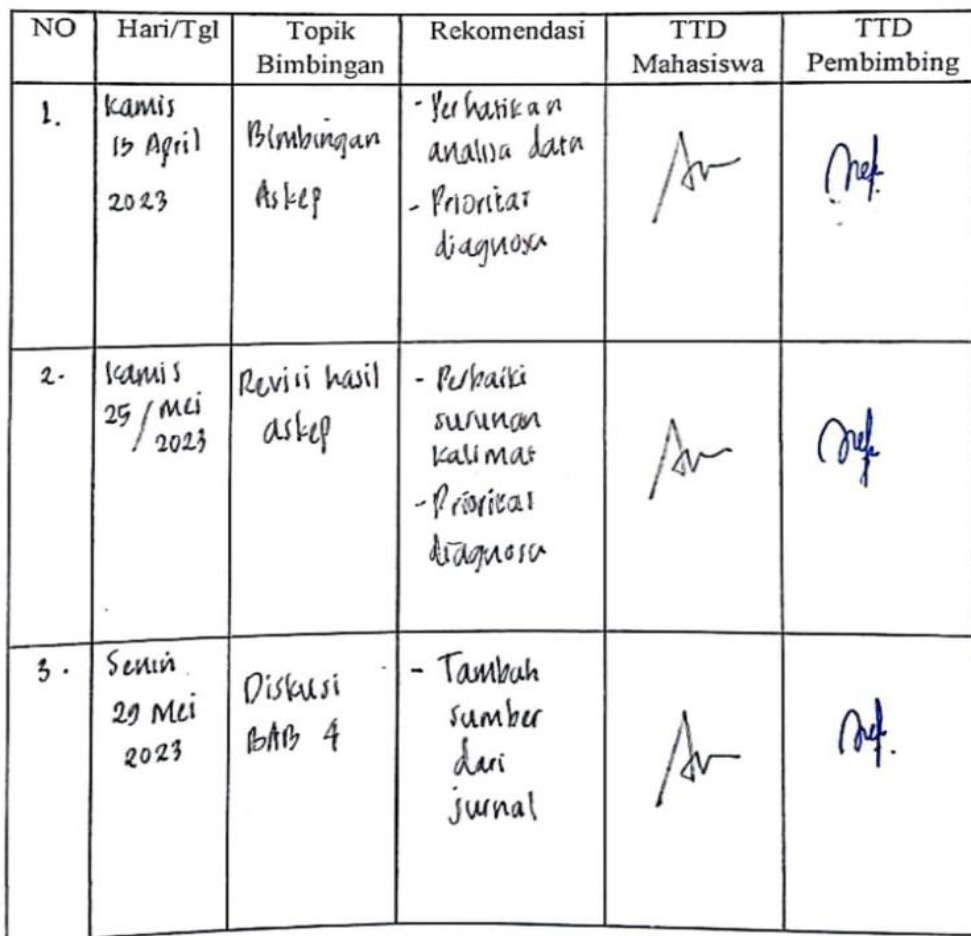 NO Hari/Tgl Topik Bimbingan Rekomendasi TTD Mahasiswa TTD Pembimbing
1.
Kamis
April
2023
Bimbingan
Askep
- Perhatikan
analisa data
- Prioritas
diagnosa
2.
Kamis
25/Mei
2023
Revisi hasil
askep
- Perbaiki
susunan
kalimat
- Prioritas
diagnosa
3.
Senin
29 Mei
2023
Diskusi
BAB 4
- Tambah
sumber
dari
jurnal